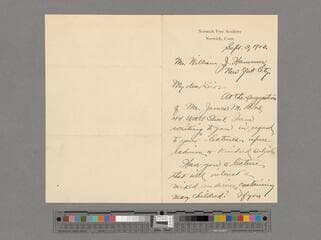 Norwich Free Academy
Norwich, Conn.
Sept. 3, 1902.
Mr. William J. Hammer,
New York City.
My dear Sir:-
At the suggestion
of Mr. James M.
44 Wall Street, I am
writing to you in regard
to your lectures upon
Radium & kindred subjects.
Have you a lecture
that will interest a
mixed audience, containing
many children? If you